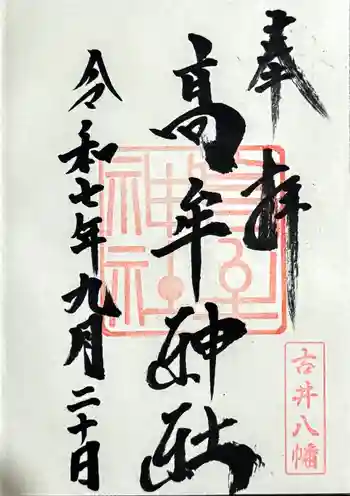 奉拝
高牟神社
令和七年九月二十日
高牟神社
古井八幡